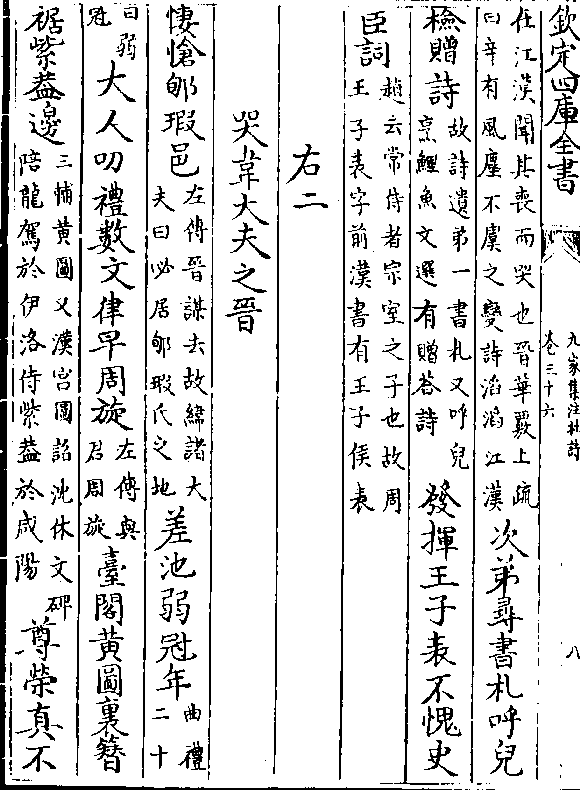 欽定四庫全書
九家集注杜詩
卷三十六
八
仕江漢聞其喪而哭也晉華覈上疏
曰辛有風塵不虞之變詩滔滔江漢
次第尋書札呼兒
檢贈詩
故詩遺第一書札又呼兒
烹鯉魚文選有贈答詩
發揮王子表不愧史
臣詞
趙云常侍者宗室之子也故周
王子表字前漢書有王子侯表
右二
哭韋大夫之晉
悽愴郇瑕邑
左傳晉謀去故絳諸大
夫曰必居郇瑕氏之地
差池弱冠年
曲禮
二十
曰弱
冠
大人叨禮數文律早周旋
左傳與
君周旋
臺閣黃圖裏簪
裾紫蓋邊
三輔黃圖又漢宮圖詔沈休文碑
陪龍駕於伊洛侍紫蓋於咸陽
尊榮真不